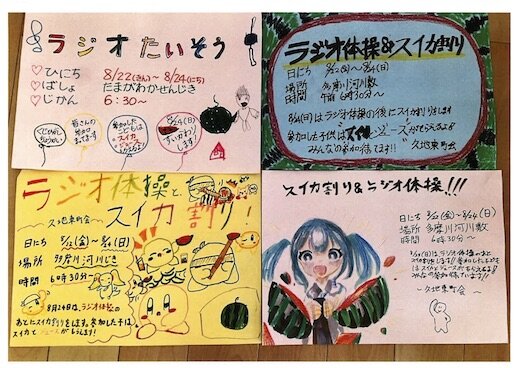 ラジオたいそう
♡ひにち 8/22(きん)～8/24(にち)
♡ばしょ たまがわかせんじき
♡じかん 6:30～
8/24(日)
すいかわり
ラジオ体操&スイカ割り
日にち 8/22(金)～8/24(日)
場所 多摩川河川敷
時間 午前6時30分～
8/24(日)はラジオ体操の後にスイカ割りをします
参加した子供は
みんなの参加待ってます!!
久地東町会
ラジオ体操と、
スイカ割り!
～久地東町会～
日にち 8/22(金)～8/24(日)
場所 多摩川河川じき
時間 6時30分～
8月24日は、ラジオ体操の
あとにスイカ割りをします。参加した子は
スイカとジュースがもらえます!
スイカ割り&ラジオ体操!!!
日にち 8/22(金)～8/24(日)
場所 多摩川河川敷
時間 6時30分～
8/24(日)はラジオ体操のあと
～久地東町会～